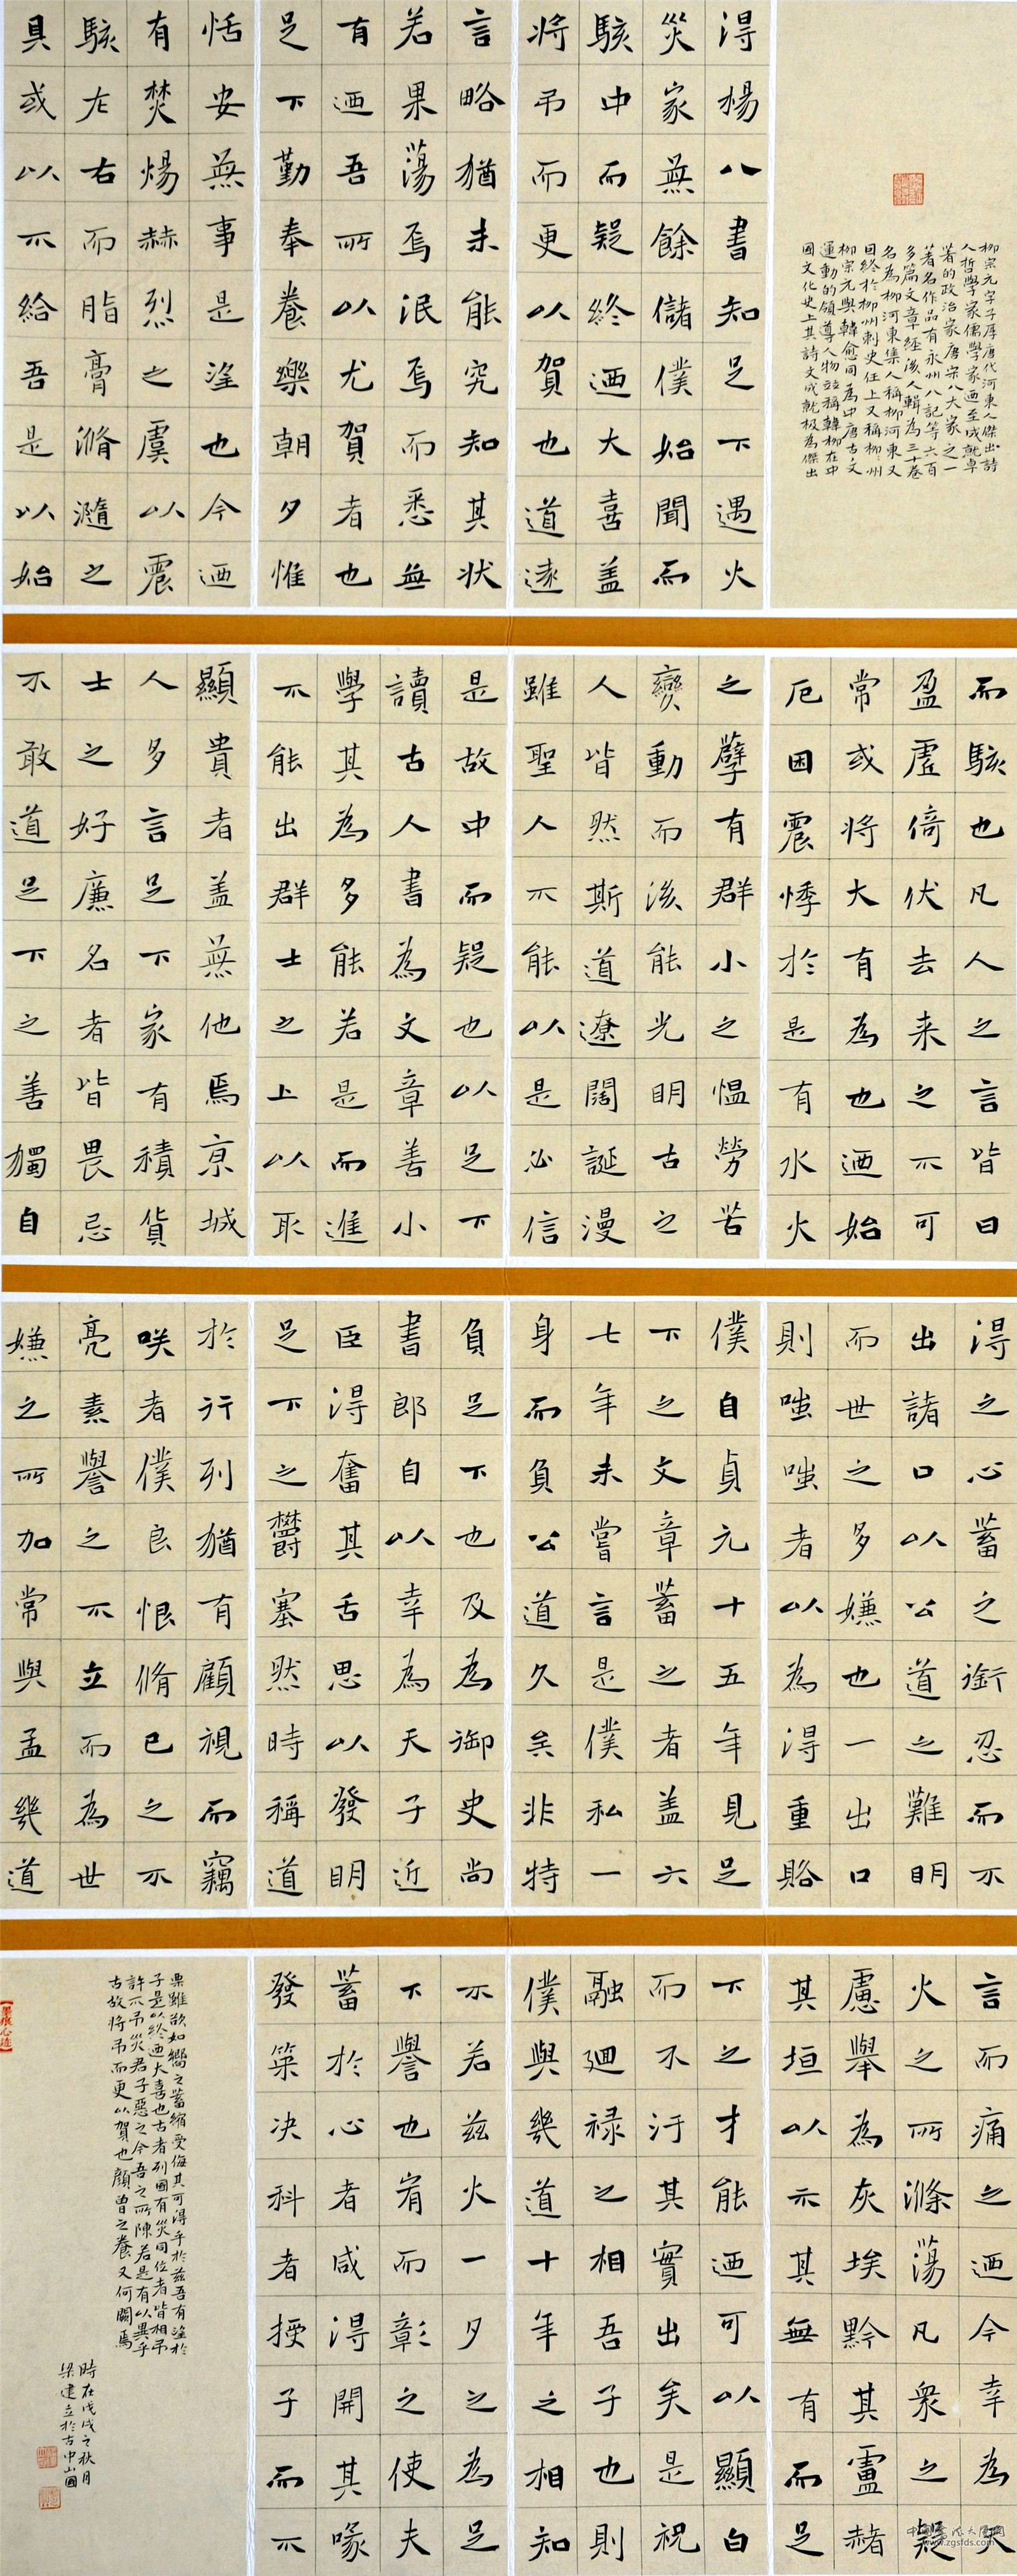 柳宗元字子厚唐代河東人傑出詩
人哲學家儒學家迺至成就卓
著的政治家唐宋八大家之一
著名作品有永州八記等六百
多篇文章經後人輯為三十卷
名為柳河東集人稱柳河東又
因終於柳州刺史任上又稱柳州
柳宗元與韓愈同為中唐古文
運動的領導人物並稱韓柳在中
國文化史上其詩文成就极為傑出
得楊八書知足下遇火
災家無餘儲僕始聞而
駭中而疑終迺大喜盖
將弔而更以賀也道遠
言略猶未能究知其狀
若果蕩焉泯焉而悉無
有迺吾所以尤賀者也
足下勤奉養樂朝夕惟
恬安無事是望也今迺
有焚煬赫烈之虞以震
駭左右而脂膏滫瀡之
具或以不給吾是以始
而駭也凡人之言皆曰
盈虛倚伏去来之不可
常或將大有為也迺始
厄困震悸於是有水火
之孽有群小之愠勞苦
變動而後能光明古之
人皆然斯道遼闊誕漫
雖聖人不能以是必信
是故中而疑也以足下
讀古人書為文章善小
學其為多能若是而進
不能出群士之上以取
顯貴者盖無他焉京城
人多言足下家有積貨
士之好廉名者皆畏忌
不敢道足下之善獨自
得之心蓄之銜忍而不
出諸口以公道之難明
而世之多嫌也一出口
則嗤嗤者以為得重賂
僕自貞元十五年見足
下之文章蓄之者盖六
七年未嘗言是僕私一
身而負公道久矣非特
負足下也及為御史尚
書郎自以幸為天子近
臣得奮其舌思以發明
足下之鬱塞然時稱道
於行列猶有顧視而竊
咲者僕良恨脩己之不
亮素譽之不立而為世
嫌之所加常與孟幾道
言而痛之迺今幸為天
火之所滌蕩凡衆之疑
慮舉為灰埃黔其廬赭
其垣以示其無有而足
下之才能迺可以顯白
而不汙其實出矣是祝
融廻禄之相吾子也則
僕與幾道十年之相知
不若茲火一夕之為足
下譽也宥而彰之使夫
蓄於心者咸得開其喙
發策决科者授子而不
栗雖欲如嚮之蓄縮受侮其可得乎於茲吾有望於
子是以終迺大喜也古者列國有災同位者皆相弔
許不弔災君子惡之今吾之所陳若是有以異乎
古故將弔而更以賀也顏曾之養又何闕焉
時在戊戌之秋月
梁建立於古中山國
www.zgsfds.com